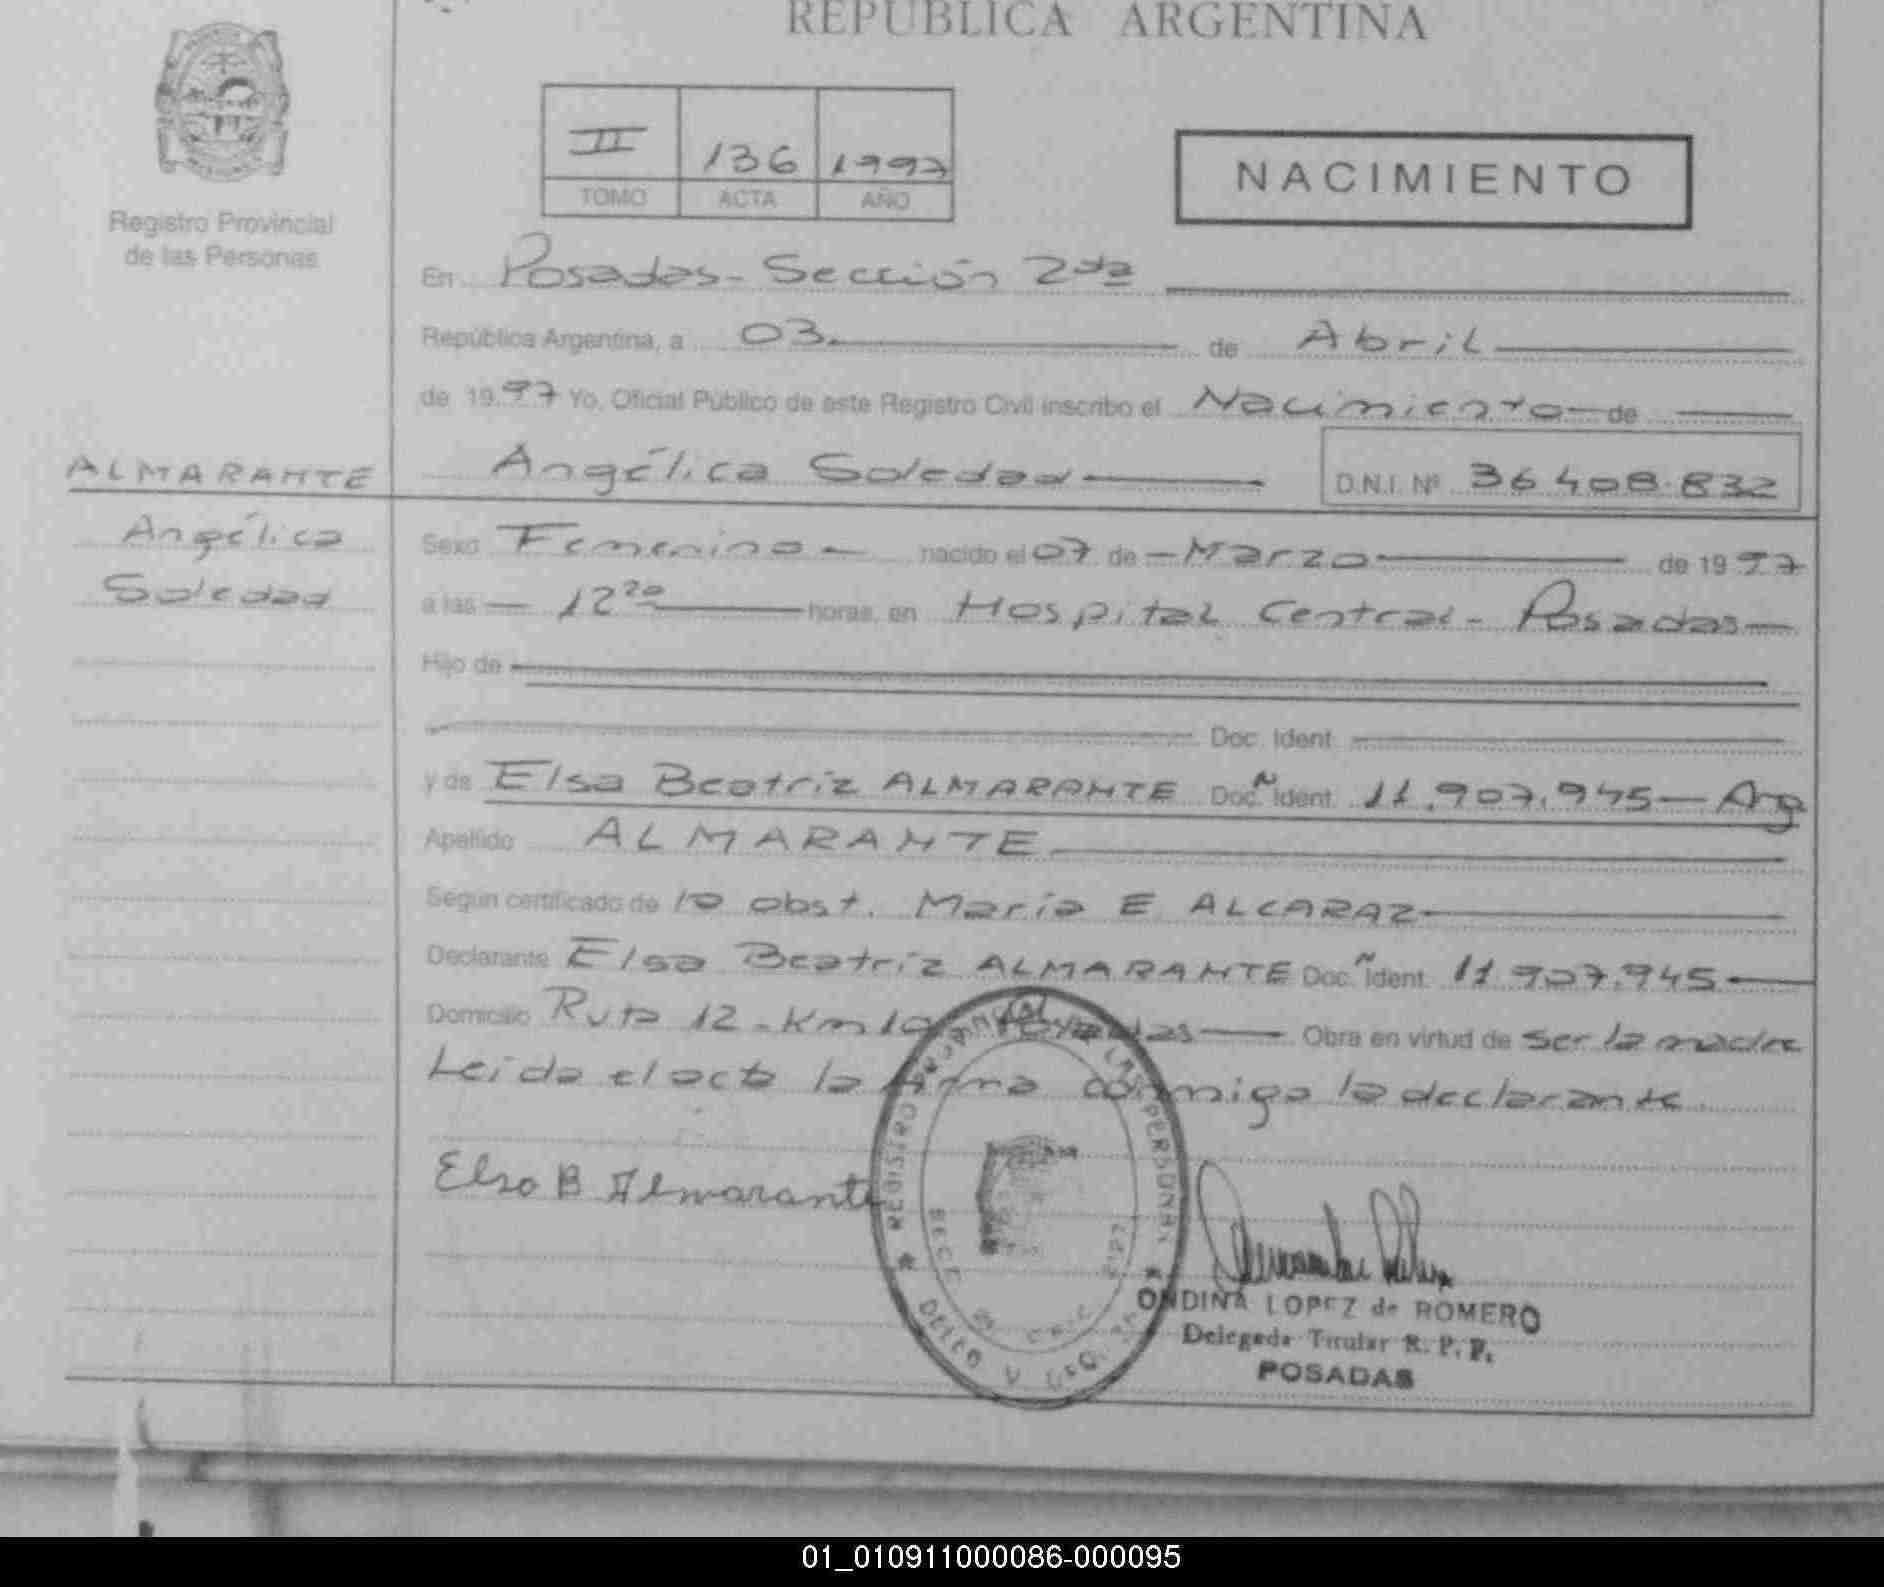 REPUBLICA ARGENTINA
II 136 1997
TOMO ACTA AÑO
NACIMIENTO
Registro Provincial
de las Personas
En Posadas - Sección 2da
República Argentina, a 03 de Abril
de 1997 Yo, Oficial Público de este Registro Civil inscribo el Nacimiento de
ALMARANTE
Angélica Soledad D.N.I. Nº 36.408.832
Angélica
Soledad
Sexo Femenino nacido el 07 de Marzo de 1997
a las 12 20 horas, en Hospital Central - Posadas
Hijo de
Doc. Ident.
y de Elsa Beatriz ALMARANTE Doc. Ident. 11.907.945 - Arg
Apellido ALMARANTE
Según certificado de la obst. María E ALCARAZ
Declarante Elsa Beatriz ALMARANTE Doc. Ident. 11.907.945
Domicilio Ruta 12 - Km 10 - Posadas Obra en virtud de ser la madre
Leida el acta la firma conmigo la declarante
Elsa B Almarante
REGISTRO PROVINCIAL DE LAS PERSONAS
ONDINA LOPEZ de ROMERO
Delegada Titular R. P. P.
POSADAS
01_010911000086-000095